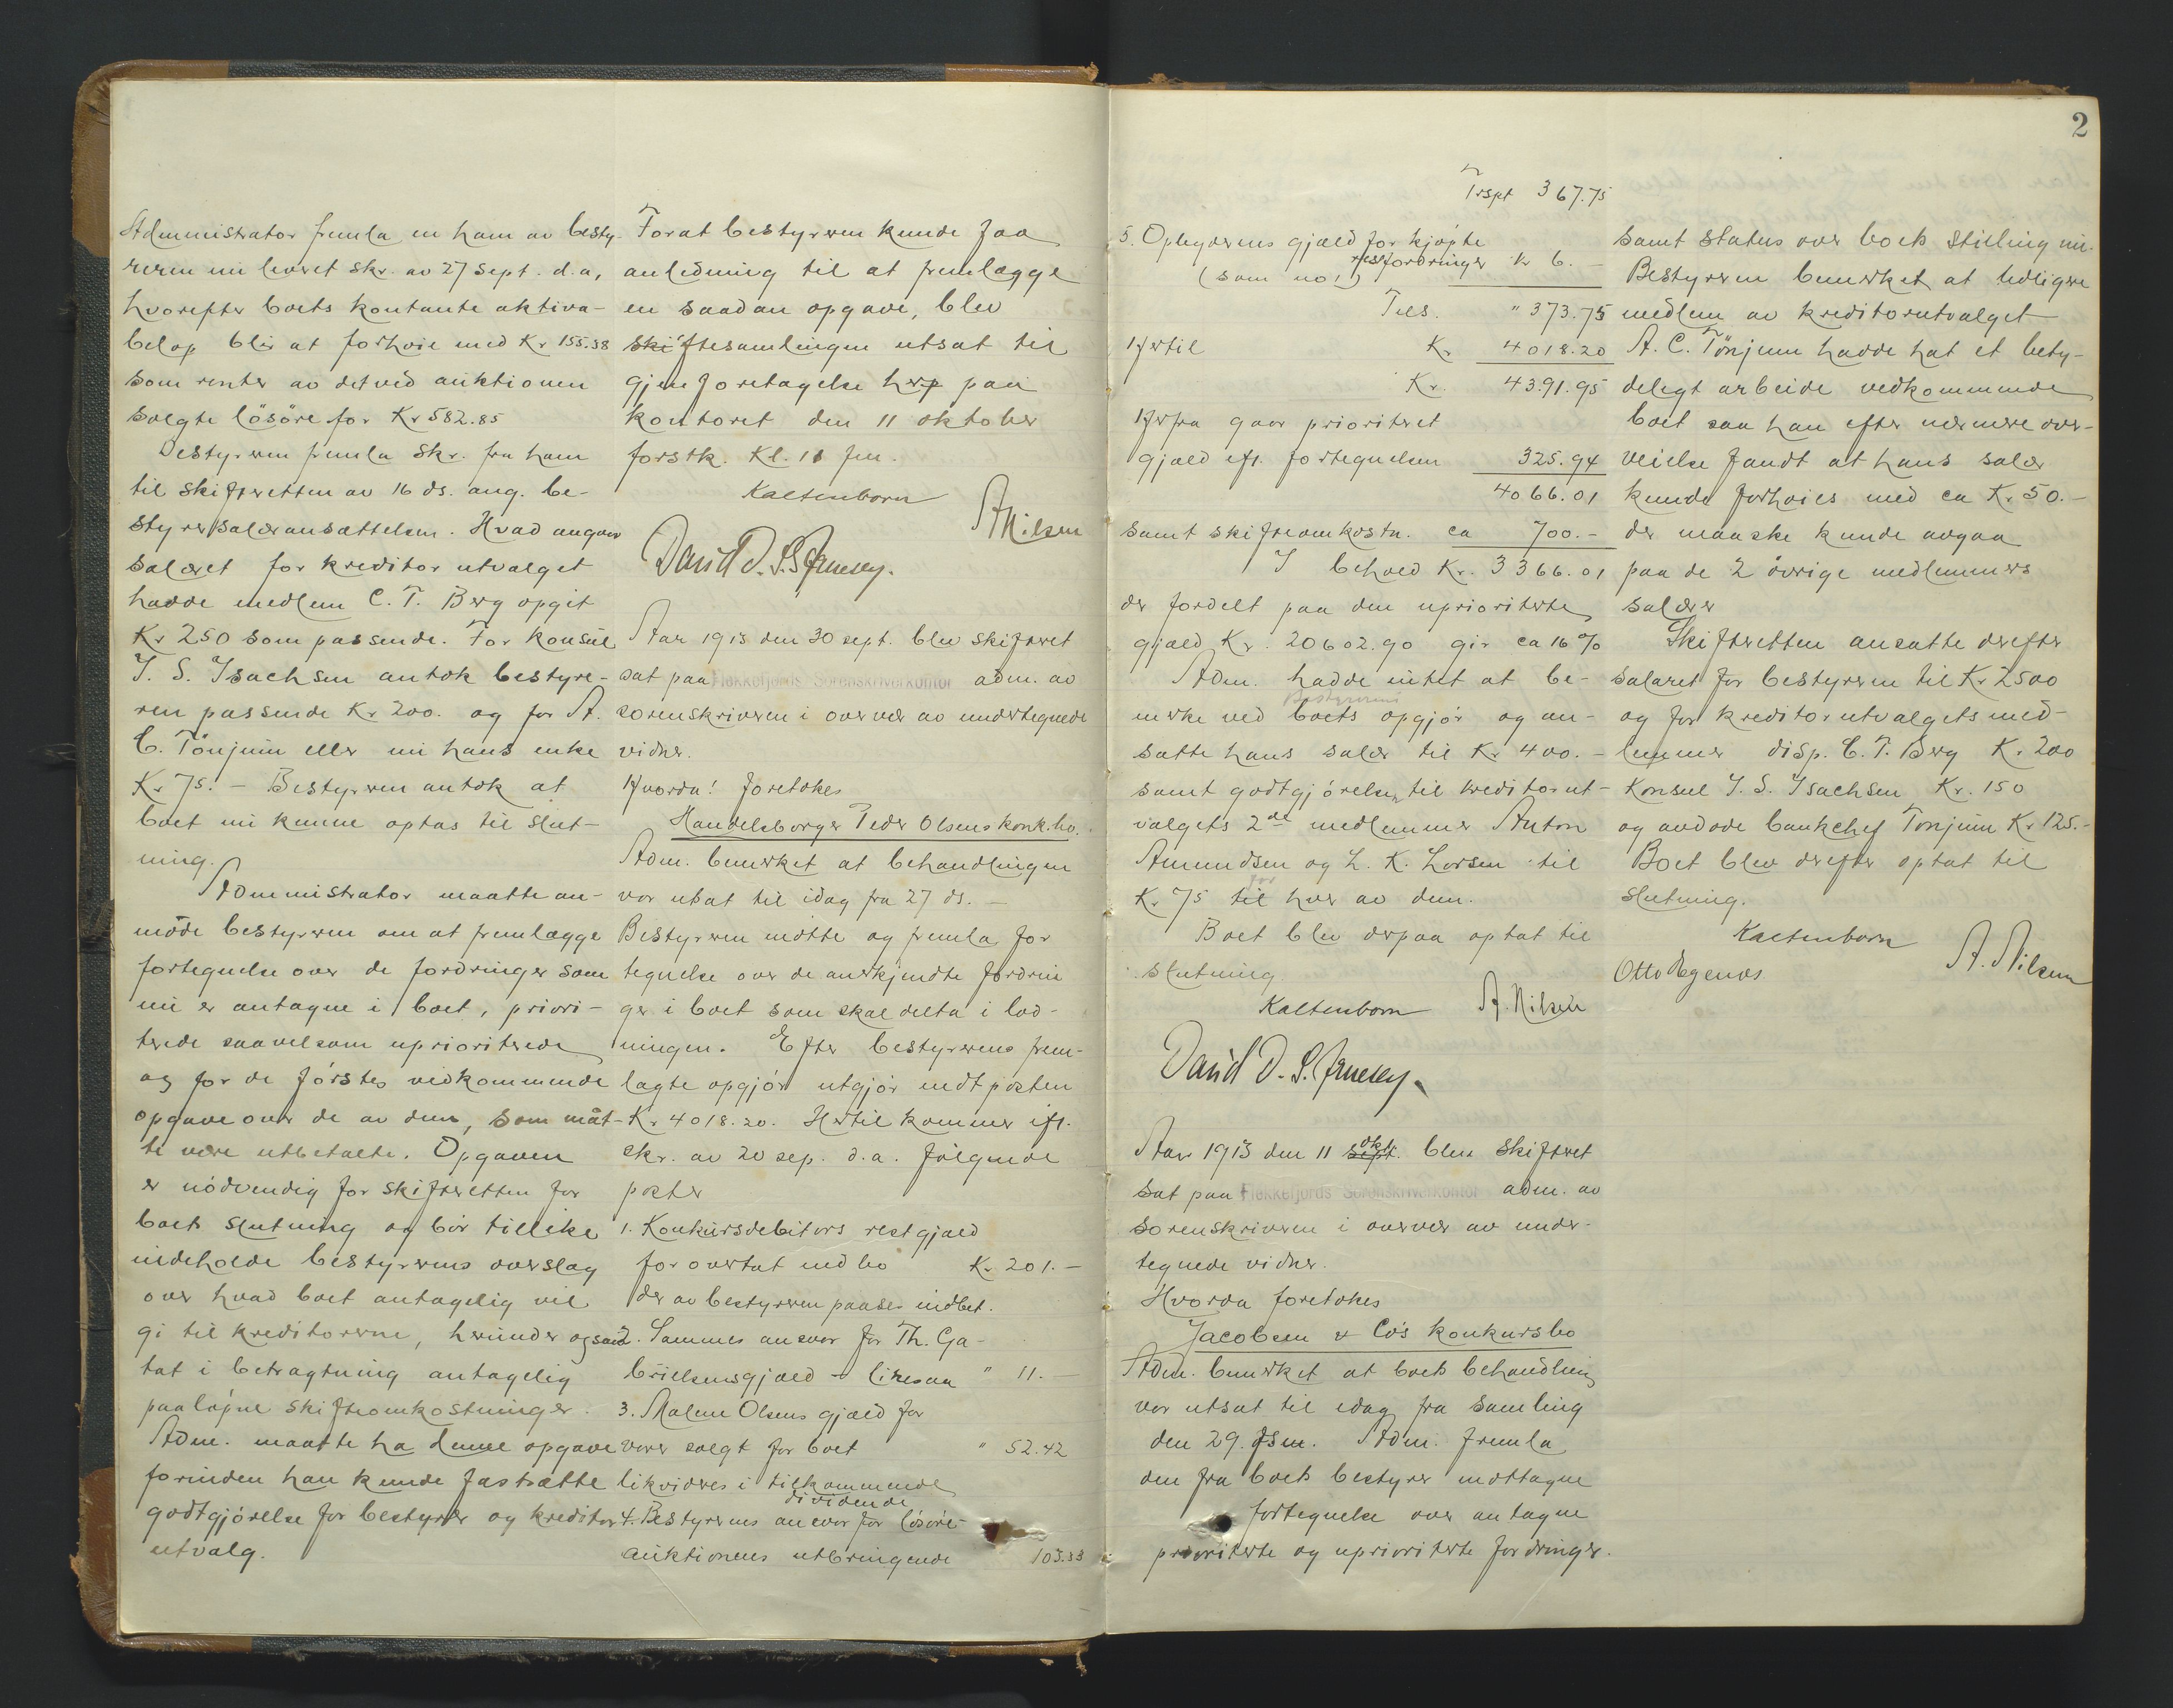 Administrator fremla en ham av besty-
reren mi leveret skr. av 27 Sept. d.a,
hvorefter boets kontante aktiva-
beløp blir at forhøie med Kr 155.38
som renter av det ved auktionen
solgte løsøre for Kr 582.85
Bestyreren fremla skr. fra ham
til skifteretten av 16 ds. ang. be-
styrersalæransættelsen. Hvad angaar
salæret for kreditorutvalget
hadde medlem C. T. Berg opgit
Kr 250 som passende. For konsul
J. S. Isachsen antok bestyre-
ren passende Kr 200. og for A.
C. Tönjum eller nu hans enke
Kr 75. - Bestyreren antok at
boet nu kunne optas til slut-
ning.
Administrator maatte an-
mode bestyreren om at fremlægge
fortegnelse over de fordringer som
nu er antagne i boet, priori-
terede saavelsom uprioriterede
og for de förstes vedkommende
opgave over de av dem, som måt-
te være utbetalte. Opgaven
er nödvendig for skifteretten for
boets slutning og bör tillike
indeholde bestyrerens overslag
over hvad boet antagelig vil
gi til kreditorerne, herunder ogsaa
tat i betragtning antagelig
paaløpne skifteomkostninger.
Adm. maatte ha denne opgave
forinden han kunde fastsætte
godtgjörelse for bestyrer og kreditor
utvalg.
Forat bestyreren kunde faa
anledning til at fremlægge
en saadan opgave, blev
skiftesamlingen utsat til
gjenforetagelse her paa
kontoret den 11 oktober
forstk. Kl. 11 fm.
Kaltenborn
A Nilsen
David D. S.
Aar 1913 den 30 sept. blev skifteret
sat paa Flekkefjords Sorenskriverkontor adm. av
sorenskriveren i overvær av undertegnede
vidner.
Hvorda! foretokes
Handelsborger Peder Olsens konk.bo.
Adm. bemerket at behandlingen
var utsat til idag fra 27 ds. -
Bestyreren mötte og fremla for
tegnelse over de anerkjendte fordrin
ger i boet som skal delta i lod-
ningen. Efter bestyrerens frem-
lagte opgjör utgjör indtpøsten
Kr. 4018.20. Hertil kommer ift.
skr. av 20 sep. d.a. fölgende
poster
1. Konkursdebitors restgjæld
for overtat indbo Kr 201.-
der av bestyreren paases indbet.
2. Sammes ansvar for Th. Ga-
brielsens gjæld - likesaa " 11.-
3. Malene Olsens gjæld for
varer solgt for boet " 52.42
likvideres i tilkommende
dividende
4. Bestyrerens ansvar for løsøre-
auktionens utbringende 103.33
2
Trspt 367.75
5. Opbyderens gjæld for kjøpte
restfordringer Kr 6.-
(som no 1)
Tils. " 373.75
Hertil Kr 4018.20
Kr. 4391.95
Herfra gaar prioriteret
gjæld ift. fortegnelsen 325.94
4066.01
samt skifteomkostn. ca 700.-
I behold Kr. 3366.01
der fordelt paa den upriorierte
gjæld Kr. 20602.90 gir ca 16 %
Adm. hadde intet at be-
merke ved boets opgjör og an-
Bestyrerens
satte hans salær til Kr 400.-
samt godtgjörelsen til kreditorut-
valgets 2de medlemmer Anton
Amundsen og L. K. Larsen til
for
Kr 75 til hver av dem.
Boet blev derpaa optat til
slutning.
Kaltenborn A. Nilsen
David D. S.
Aar 1913 den 11 sept. okt. blev skifteret
sat paa Flekkefjords Sorenskriverkontor adm. av
sorenskriveren i overvær av under-
tegnede vidner.
Hvorda foretokes
Jacobsen & Co's konkursbo
Adm. bemerket at boets behandling
var utsat til idag fra samling
den 29. f.m. Adm. fremla
den fra boets bestyrer mottagne
fortegnelse over antagne
prioriterte og uprioriterte fordringer.
samt status over boets stilling nu.
Bestyreren bemerket at tidligere
medlem av kreditorutvalget
A. C. Tönjum hadde hat et bety-
deligt arbeide vedkommende
boet saa han efter nærmere over-
veielse fandt at hans salær
kunde forhøies med ca Kr. 50.-
der maaske kunde avgaa
paa de 2 övrige medlemmers
salærer
Skifteretten ansatte derefter
salæret for bestyreren til Kr 2500
og for kreditorutvalgets med-
lemmer disp. C. T. Berg Kr. 200
Konsul J. S. Isachsen Kr. 150
og avdøde bankchef Tönjum Kr 125.-
Boet blev derefter optat til
slutning.
Kaltenborn
Otto Egenæs
A. Nilsen